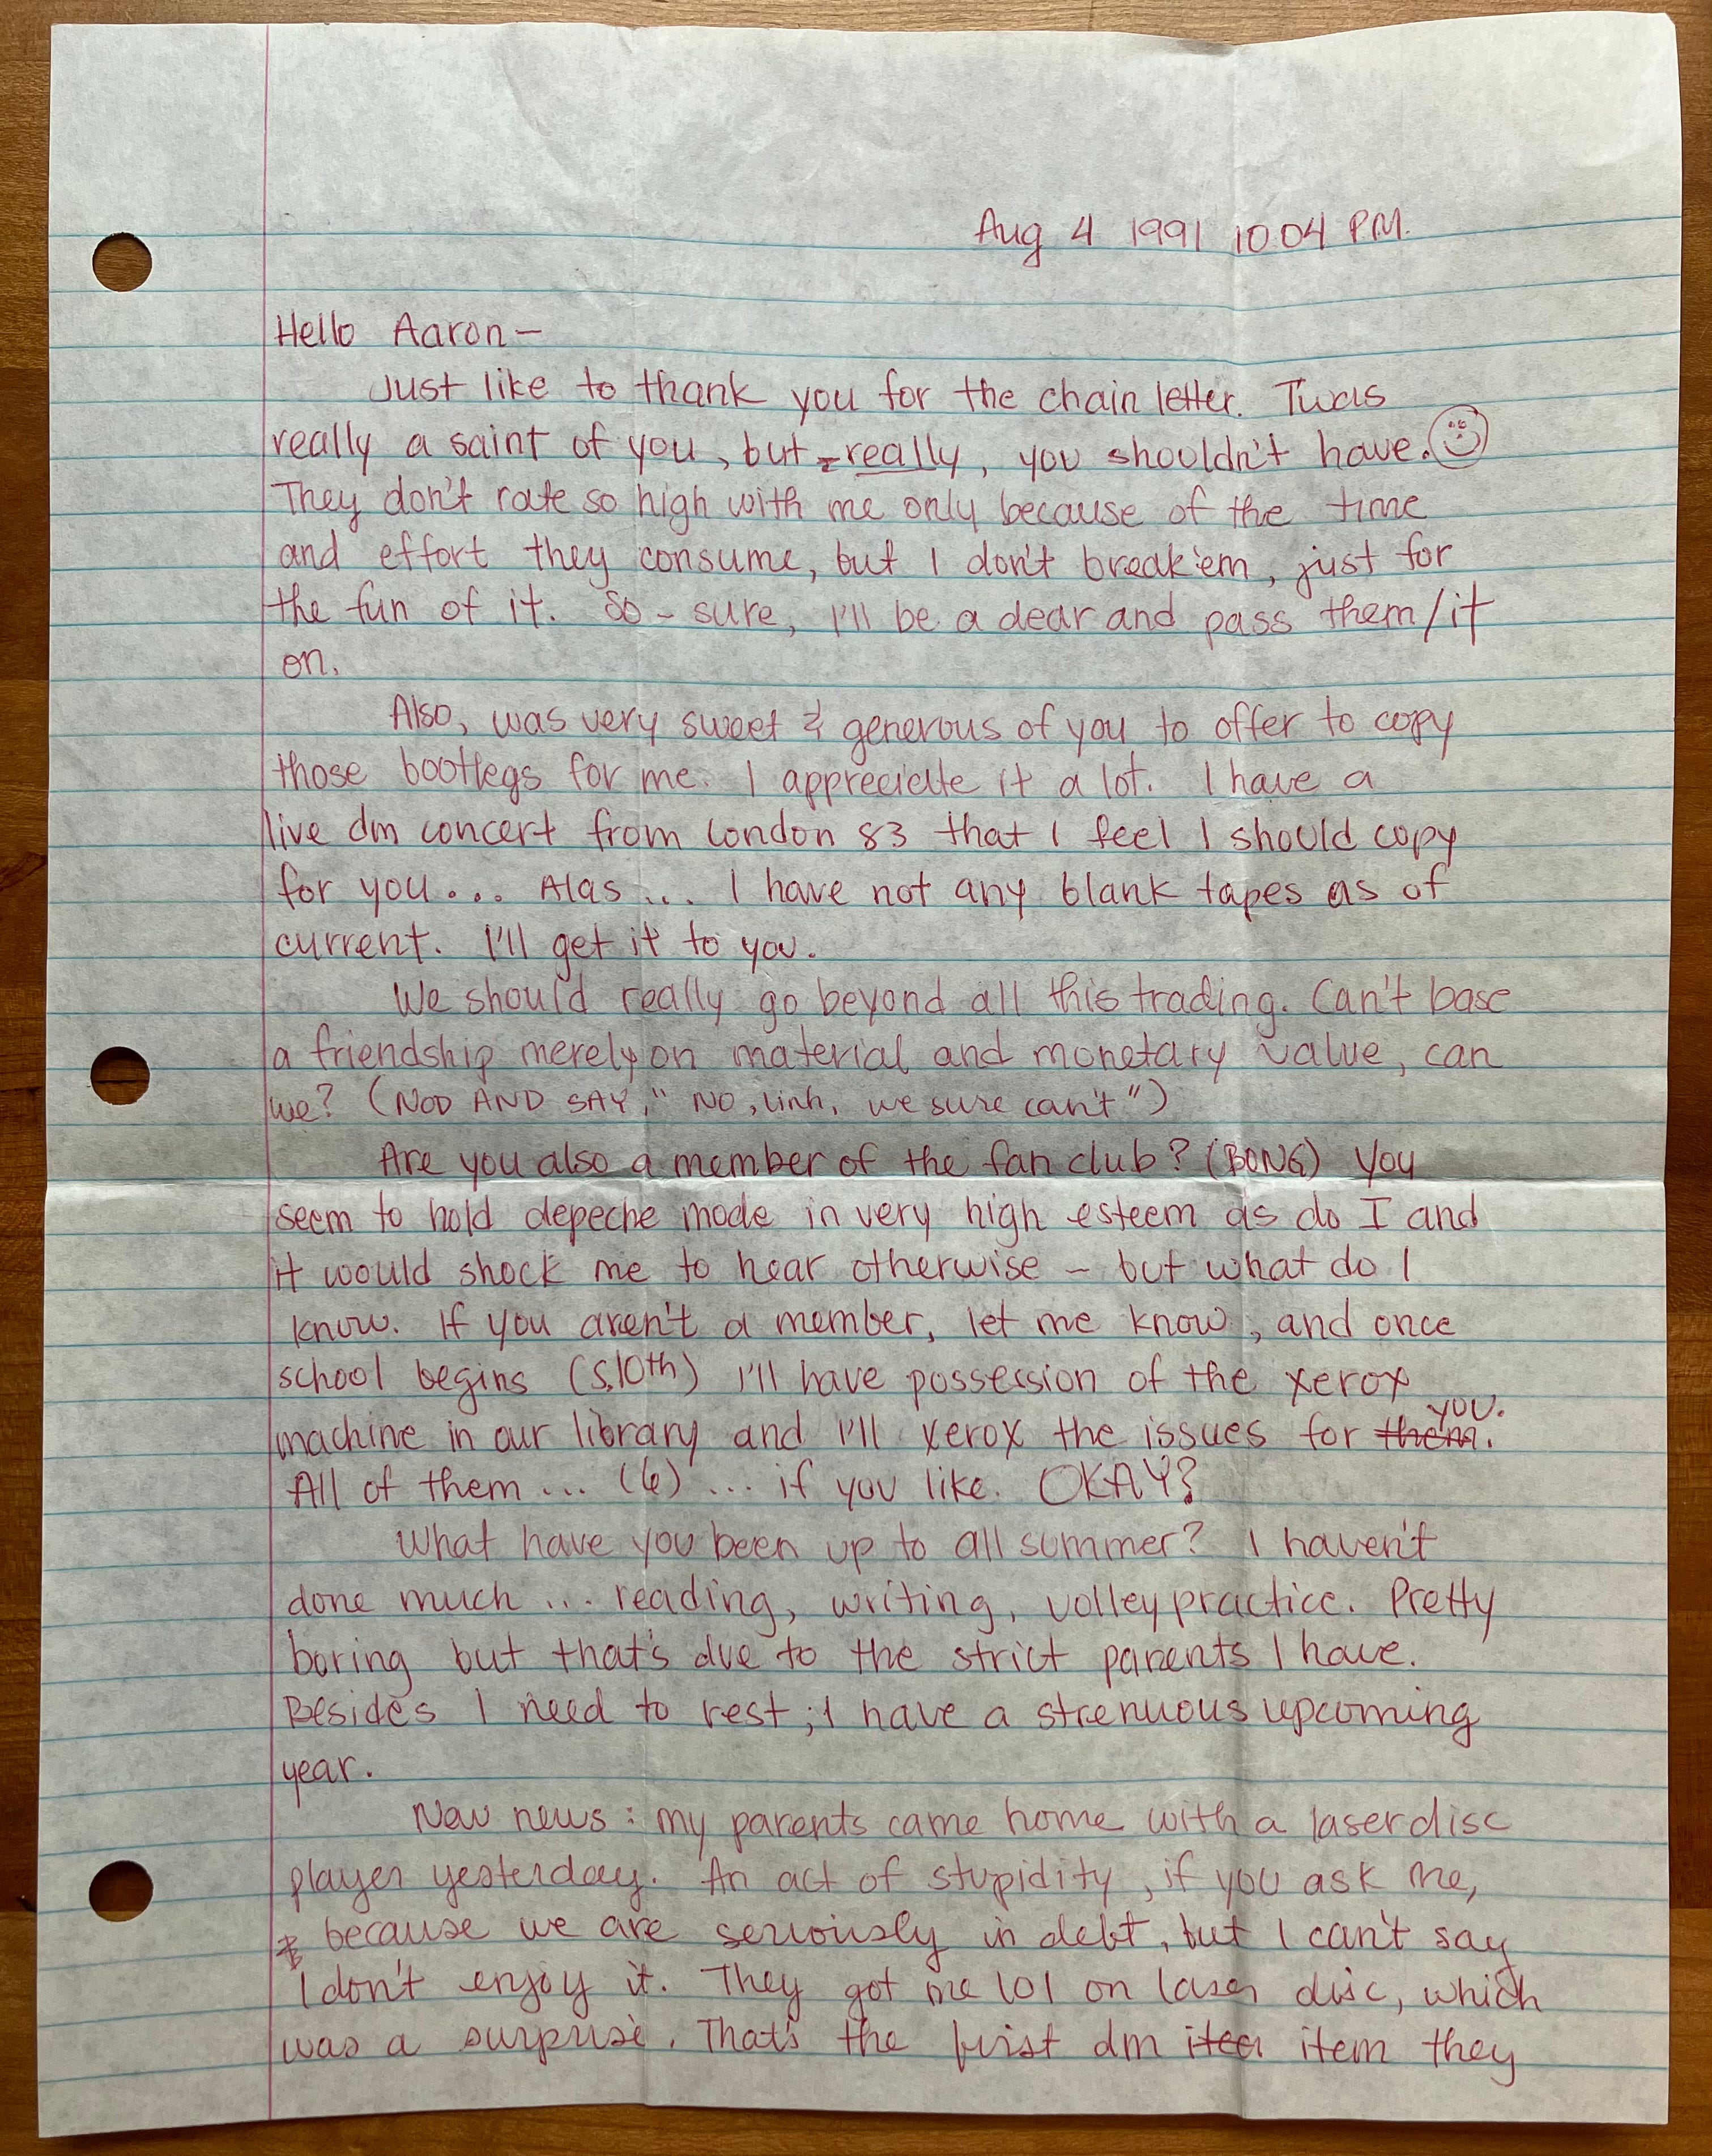 Aug 4 1991 10:04 P.M.
Hello Aaron—
Just like to thank you for the chain letter. Twas
really a saint of you, but - really, you shouldn't have.
They don't rate so high with me only because of the time
and effort they consume, but I don't break 'em, just for
the fun of it. So - sure, I'll be a dear and pass them/it
on.
Also, was very sweet & generous of you to offer to copy
those bootlegs for me. I appreciate it a lot. I have a
live dm concert from London 83 that I feel I should copy
for you... Alas... I have not any blank tapes as of
current. I'll get it to you.
We should really go beyond all this trading. Can't base
a friendship merely on material and monetary value, can
we? (NOD AND SAY, "NO, Linh, we sure can't")
Are you also a member of the fan club? (BONG) You
seem to hold depeche mode in very high esteem as do I and
it would shock me to hear otherwise - but what do I
know. If you aren't a member, let me know, and once
school begins (S,10th) I'll have possession of the xerox
machine in our library and I'll xerox the issues for them. you.
All of them... (6)... if you like. OKAY?
What have you been up to all summer? I haven't
done much... reading, writing, volley practice. Pretty
boring but that's due to the strict parents I have.
Besides I need to rest; I have a strenuous upcoming
year.
New news: my parents came home with a laser disc
player yesterday. An act of stupidity, if you ask me,
* because we are seriously in debt, but I can't say
I don't enjoy it. They got me 101 on laser disc, which
was a surprise. That's the first dm item they